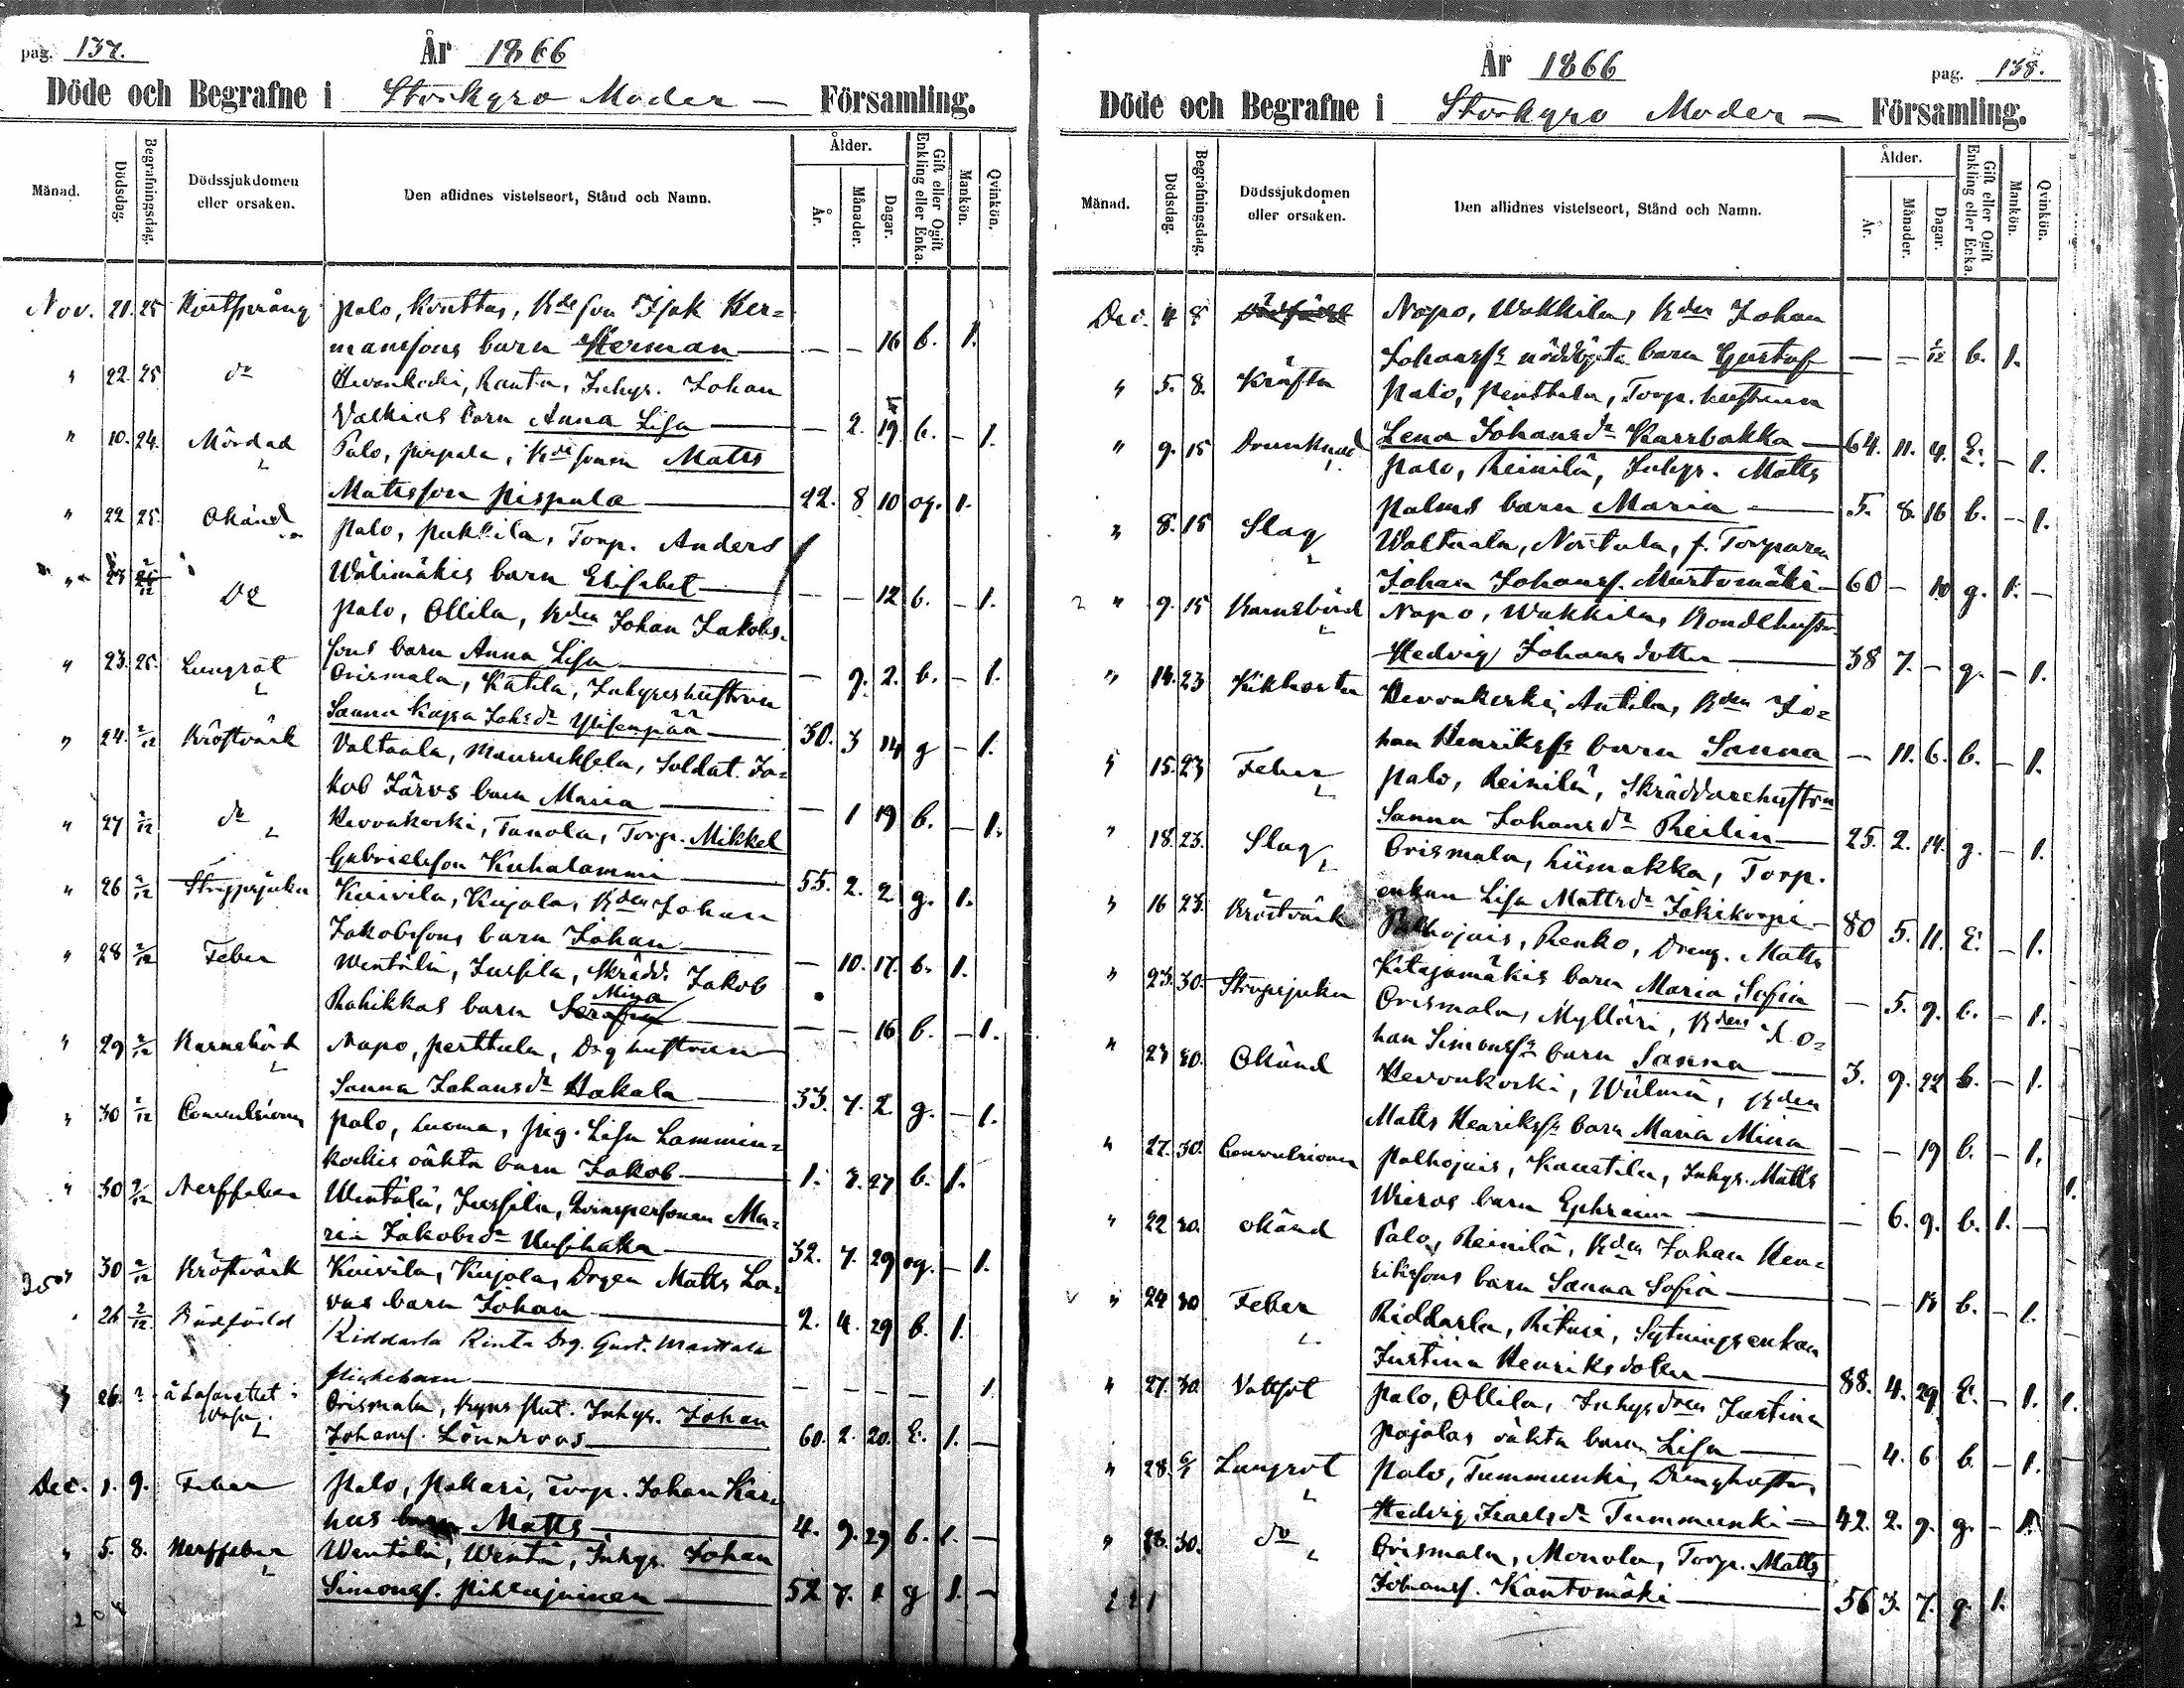 pag. 137.
År 1866
Döde och Begrafne i Storkyro Moder — Församling.
Månad.
Dödsdag.
Begrafningsdag.
Dödssjukdomen eller orsaken.
Den aflidnes vistelseort, Stånd och Namn.
Ålder.
År.
Månader.
Dagar.
Gift eller Ogift Enkling eller Enka.
Mankön.
Qvinkön.
Nov. 21. 25 palo, Kouttas, Bdesson Isak Her=
manssons barn Herman — — — 16 b. 1.
" 22. 25 do Hevonkoski, Ranta, Inhys. Johan
Valkias barn Anna Lisa — — 2. 19. b. — 1.
" 10. 24. Mördad Palo, pispala, Bdesonen Matts
Mattsson Pispala — 22. 8 10 og. 1.
" 22 25. Okänd palo, pukkila, Torp. Anders
Wälimäkis barn Elisabet — — — 12 b. — 1.
" 23 2/12 Do palo, Ollila, Bden Johan Jakobs=
sons barn Anna Lisa — — 9. 2. b. — 1.
" 23. 25. Lungsot Orismala, Katila, Inhyseshustrun
Sanna Kajsa Johsdr Ylisenpää — 30. 3 14 g — 1.
" 24. 2/12 Bröstvärk Valtaala, Maunuksela, Soldat. Ja=
kob Järvs barn Maria — — 1 19 b. — 1.
" 27 2/12 do Hevonkoski, Tanola, Torp. Mikkel
Gabrielsson Kuhalammi — 55. 2. 2 g. 1.
" 26 2/12 Strypsjuka Kuivila, Kujala, Bden Johan
Jakobssons barn Johan — — 10. 17. b. 1.
" 28 2/12 Feber Wentälä, Jussila, Skrädd. Jakob
Rahikkas barn Mina — — — 16 b. — 1.
" 29 2/12 Barnsbörd Napo, perttula, Drg hustrun
Sanna Johansdr Hakala — 33. 7. 2. g. — 1.
" 30 2/12 Convulsioner palo, Luoma, pig. Lisa Lammin=
koskis oäkta barn Jakob — 1. 8. 27 b. 1.
" 30 2/12 Nerffeber Wentälä, Jussila, Qvinspersonen Ma=
ria Jakobsdr Uusihaka — 32. 7. 29 og. — 1.
" 30 2/12 Bröstvärk Kuivila, Kujala, Drgen Matts La=
vas barn Johan — 2. 4. 29 b. 1.
" 26 2/12. Dödfödd Riddarla Rinta Drg. Gust. Marttala
flickebarn — — — — — 1.
" 26. ? å Lasarettet i Wasa Orismala, Inhys. Johan
Johanss. Lönnroos — 60. 2. 20. E. 1. —
Dec. 1. 9. Feber palo, pukari, Torp. Johan Kar=
hus barn Matts — 4. 9. 29 b. 1. —
" 5. 8. Nerffeber Wentälä, Wentä, Inhys. Johan
Simonss. Pihlajainen — 52 7. 1 g 1. —
År 1866
pag. 138.
Döde och Begrafne i Storkyro Moder — Församling.
Månad.
Dödsdag.
Begrafningsdag.
Dödssjukdomen eller orsaken.
Den aflidnes vistelseort, Stånd och Namn.
Ålder.
År.
Månader.
Dagar.
Gift eller Ogift Enkling eller Enka.
Mankön.
Qvinkön.
Dec. 4 8 Napo, Wakkila, Bden Johan
Johanss nöddöpta barn Gustaf — — — 1/12 b. 1.
" 5. 8. Kräfta Palo, penttala, Torp. hustrun
Lena Johansdr Karrbakka — 64. 11. 4. E. — 1.
" 9. 15 Drunknad palo, Reinilä, Inhys. Matts
Palms barn Maria — 5. 8. 16 b. — 1.
" 8. 15 Slag Waltaala, Noitula, f. Torparen
Johan Johanss. Murtomäki — 60 — 10 g. 1. —
" 9. 15 Barnsbörd Napo, Wakkila, Bondehustr.
Hedvig Johansdotter — 38 7. — g. — 1.
" 14. 23 Kikhosta Hevonkoski, Antila, Bden Jo=
han Henrikss barn Sanna — 11. 6. b. — 1.
" 15. 23 Feber palo, Reinilä, Skräddarehustrun
Sanna Johansdr Reilin — 25. 2. 14. g. — 1.
" 18. 23. Slag Orismala, Liimakka, Torp.
enkan Lisa Mattsdr Jäkikorpi — 80 5. 11. E. — 1.
" 16 23. Bröstvärk Palhojais, Renko, Dreng. Matts
Katajamäkis barn Maria Sofia — 5. 9. b. — 1.
" 23. 30. Strypsjuka Orismala, Mylläri, Bden Jo=
han Simonss barn Sanna — 3. 9. 22 b. — 1.
" 23 30. Okänd Hevonkoski, Wälimä, Bden
Matts Henrikss barn Maria Mina — — 19 b. — 1.
" 27. 30. Convulsioner palhojais, Kaustila, Inhys. Matts
Wieros barn Ephraim — — 6. 9. b. 1. —
" 22 30. Okänd Palo, Reinilä, Bden Johan Hen=
rikssons barn Sanna Sofia — — — 18 b. — 1.
" 24 30 Feber Riddarla, Rituri, Sytningsenkan
Justina Henriksdotter — 88. 4. 29. E. — 1.
" 27. 30. Vattsot palo, Ollila, Inhysdren Justina
pajalas oäkta barn Lisa — — 4. 6 b. — 1.
" 28. 6/1 Lungsot palo, Tummunki, Dränghustru
Hedvig Israelsdr Tummunki — 42. 2. 9. g. — 1.
" 28. 30. do Orismala, Monola, Torp. Matts
Johanss. Kantomäki — 56 3. 7. g. 1.